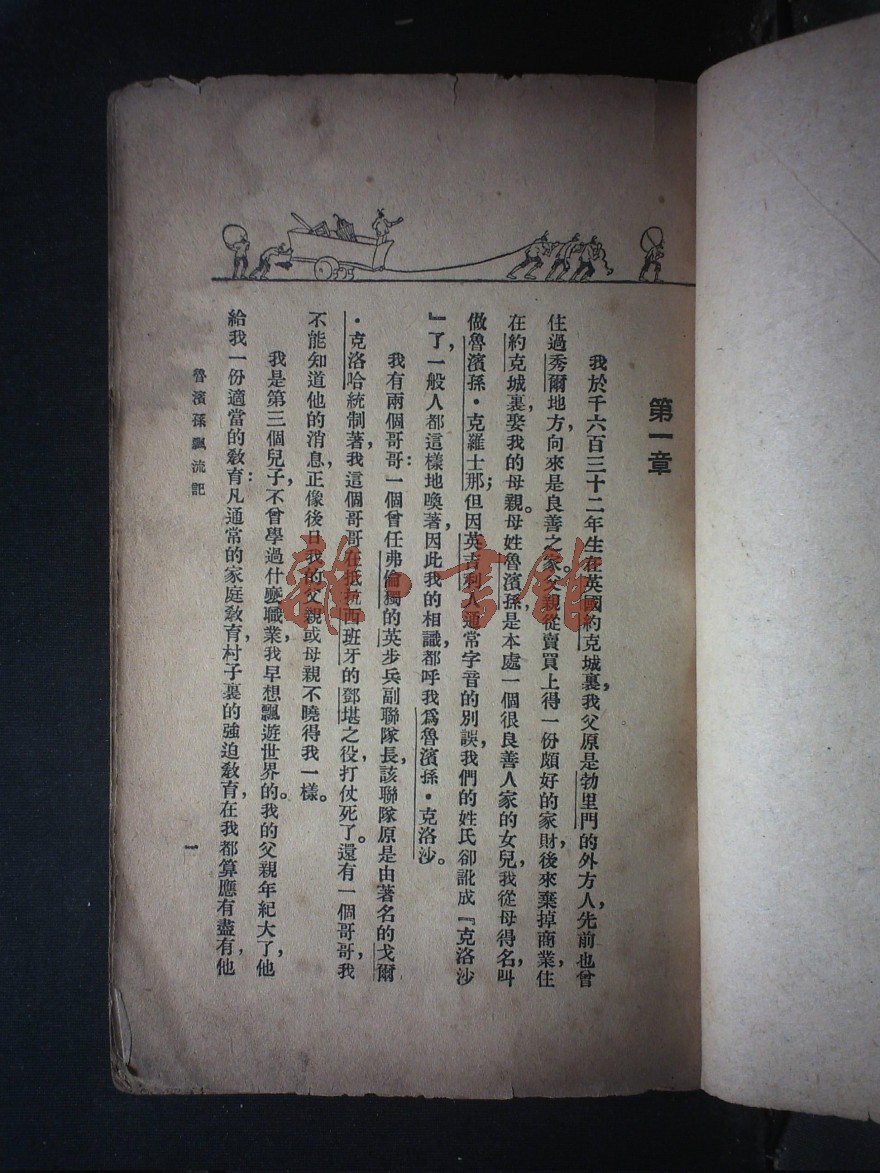 第一章
我於千六百三十二年生在英國約克城裏，我父原是勃里門的外方人，先前也曾
住過秀爾地方，向來是良善之家。父親從賣買上得一份頗好的家財，後來棄掉商業，住
在約克城裏，娶我的母親。母姓魯濱孫，是本處一個很良善人家的女兒，我從母得名，叫
做魯濱孫·克羅士那；但因英吉利人通常字音的別誤，我們的姓氏卻訛成『克洛沙
』了，一般人都這樣地喚著，因此我的相識都呼我爲魯濱孫·克洛沙。
我有兩個哥哥：一個曾任弗倫獨的英步兵副聯隊長，該聯隊原是由著名的戈爾
·克洛哈統制著，我這個哥哥在抵抗西班牙的鄧堪之役，打仗死了。還有一個哥哥，我
不能知道他的消息，正像後日我的父親或母親不曉得我一樣。
我是第三個兒子，不曾學過什麼職業，我早想飄遊世界的。我的父親年紀大了，他
給我一份適當的教育：凡通常的家庭教育，村子裏的強迫教育，在我都算應有盡有，他
魯濱孫飄流記
一
雜·書館